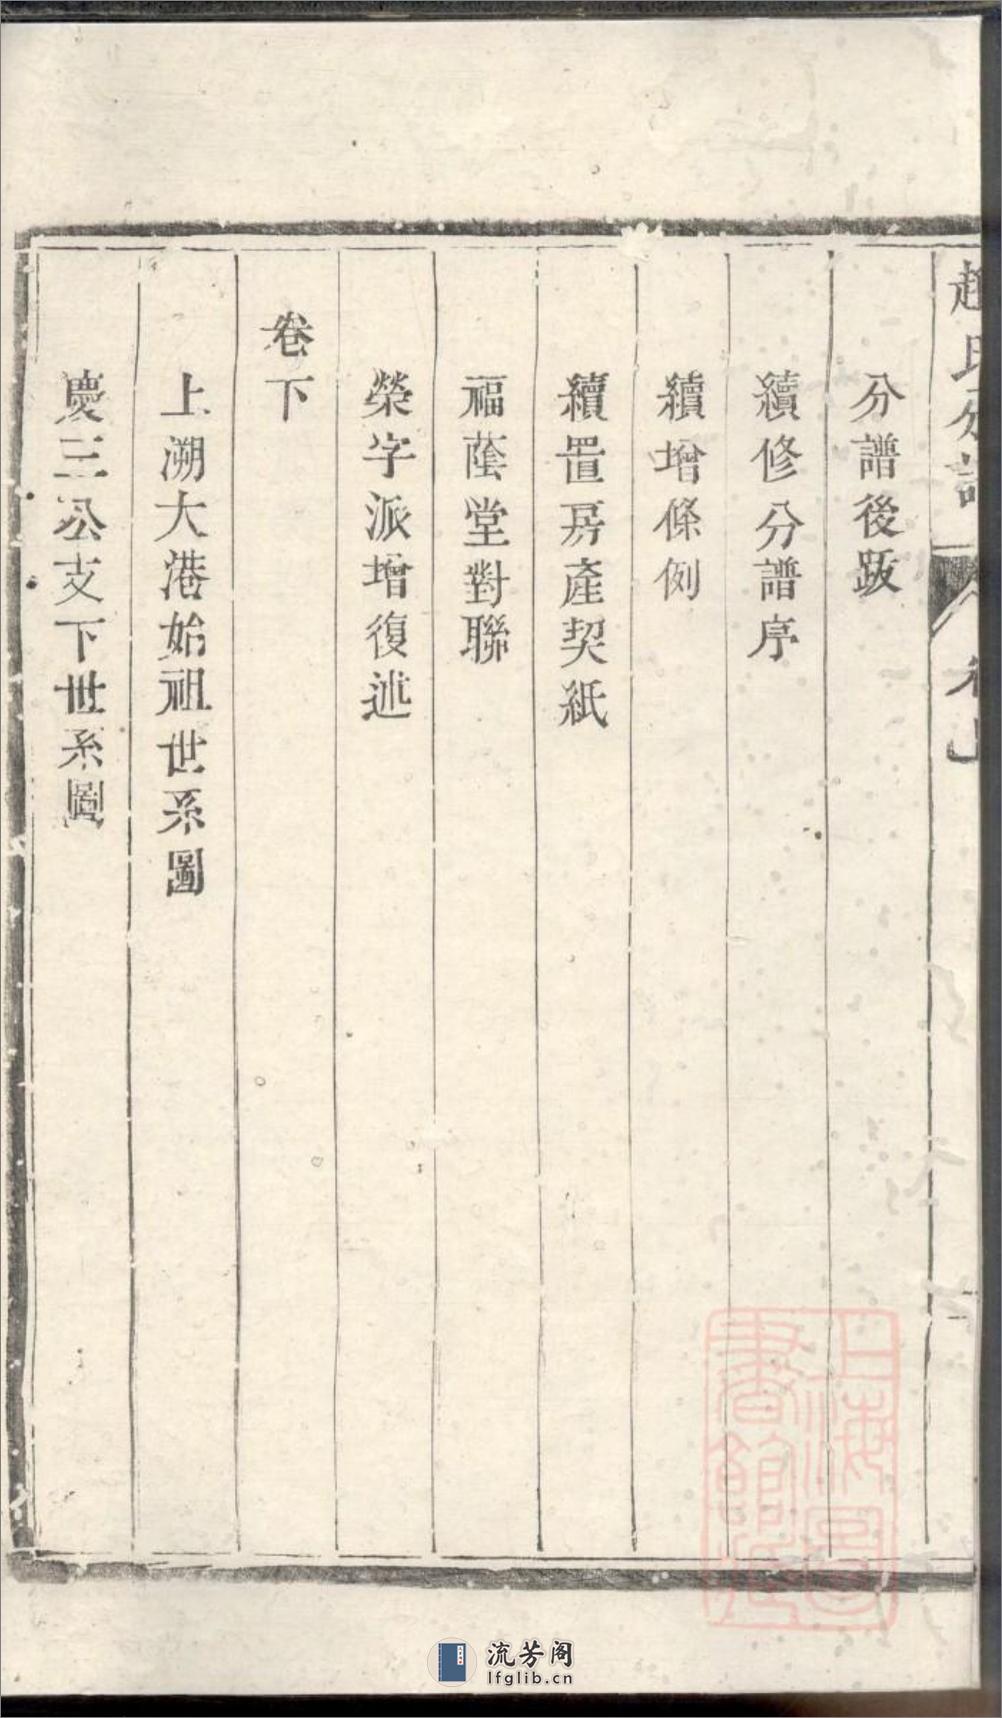 趙氏分譜
卷上
分譜後跋
續修分譜序
續增條例
續置房產契紙
福蔭堂對聯
榮字派增復述
卷下
上溯大港始祖世系圖
慶三公支下世系圖
上海圖書館藏
流芳阁
lfglib.cn